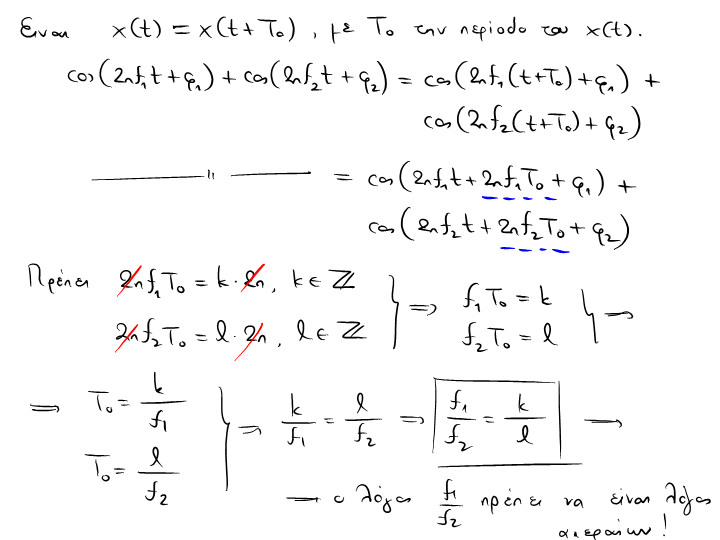 Είναι x(t) = x(t+T₀), με T₀ την περίοδο του x(t).
cos(2πf₁t+φ₁) + cos(2πf₂t+φ₂) = cos(2πf₁(t+T₀)+φ₁) +
cos(2πf₂(t+T₀)+φ₂)
——— " ——— = cos(2πf₁t + 2πf₁T₀ + φ₁) +
cos(2πf₂t + 2πf₂T₀ + φ₂)
Πρέπει 2πf₁T₀ = k·2π, k ∈ ℤ } ⇒ f₁T₀ = k } →
2πf₂T₀ = l·2π, l ∈ ℤ f₂T₀ = l
⇒ T₀ = k/f₁ } ⇒ k/f₁ = l/f₂ ⇒ f₁/f₂ = k/l →
T₀ = l/f₂
→ ο λόγος f₁/f₂ πρέπει να είναι λόγος
ακεραίων!